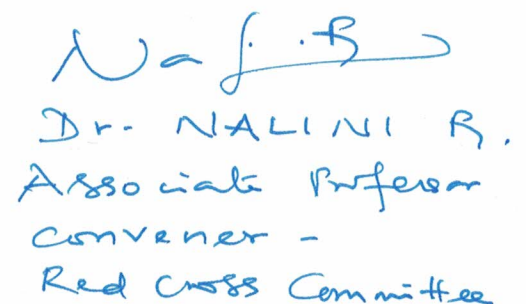 Dr. NALINI R.
Associate Professor
Convener -
Red Cross Committee